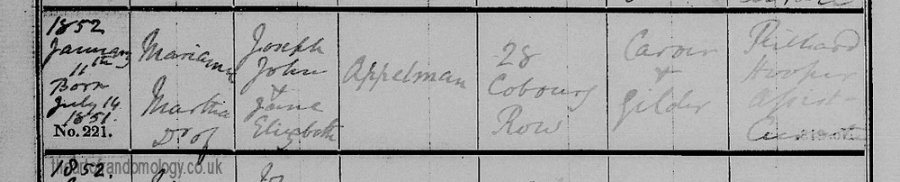 1852
January
11th
Born
July 14
1851.
No. 221.
Marianne
Martha
Dr of
Joseph
John
+
Jane
Elizabeth
Appelman
28
Cobourg
Row
Carver
+
Gilder
Richard
Hooper
Assist-
Curate
1852.
Jo